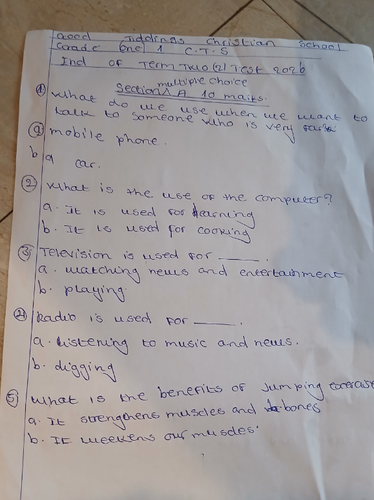 Good Tidings Christian School
Grade One 1 C.T.S
End of Term Two (2) Test 2026
multiple choice
Section A 10 marks.
① What do we use when we want to
talk to someone who is very
ⓐ mobile phone.
b a car.
② What is the use of the computer?
a. It is used for learning
b. It is used for cooking
③ Television is used for _____.
a. watching news and entertainment
b. playing
④ Radio is used for _____.
a. Listening to music and news.
b. digging
⑤ What is the benefits of Jumping exercise
a. It strengthens muscles and bones
b. It weekens our muscles.